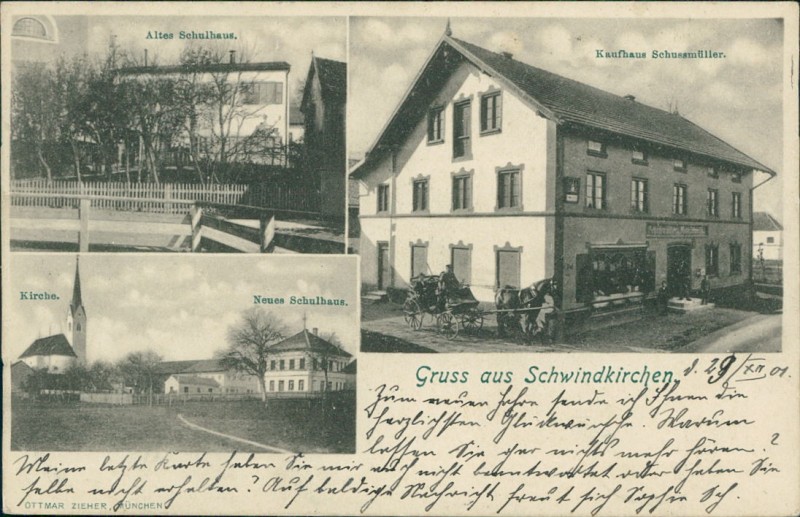 Altes Schulhaus.
Kaufhaus Schussmüller.
Kirche.
Neues Schulhaus.
Gruss aus Schwindkirchen, d. 29/XII 01.
Zum neuen Jahre sende ich Ihnen die
herzlichsten Glückwünsche. Warum
lassen Sie gar nichts mehr hören?
Meine letzte Karte haben Sie mir auch nicht beantwortet oder haben Sie
selbe nicht erhalten? Auf baldige Nachricht freut sich Sophie Sch.
OTTMAR ZIEHER, MÜNCHEN